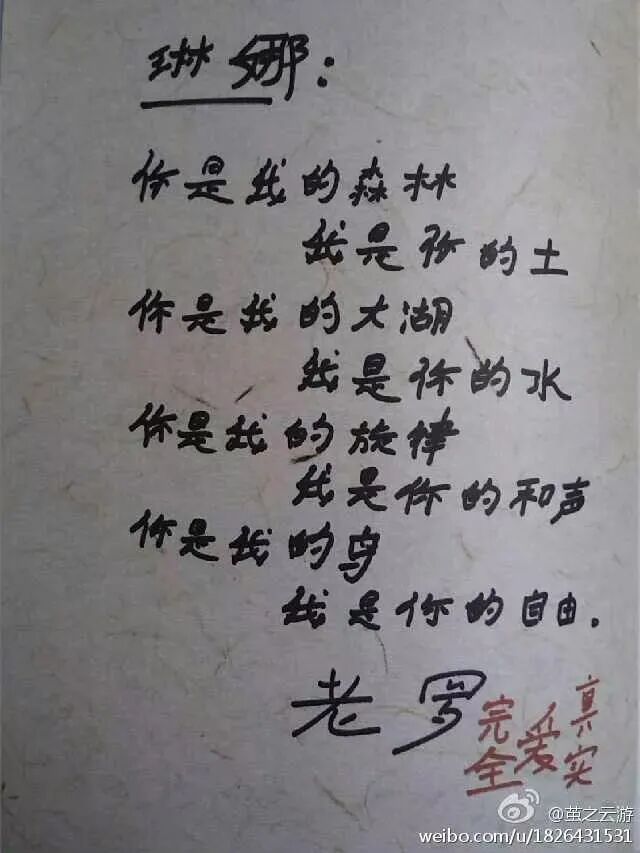 琳娜：
你是我的森林
我是你的土
你是我的大湖
我是你的水
你是我的旋律
我是你的和声
你是我的鸟
我是你的自由.
老罗
完全
爱
真实
@茧之云游
weibo.com/u/1826431531